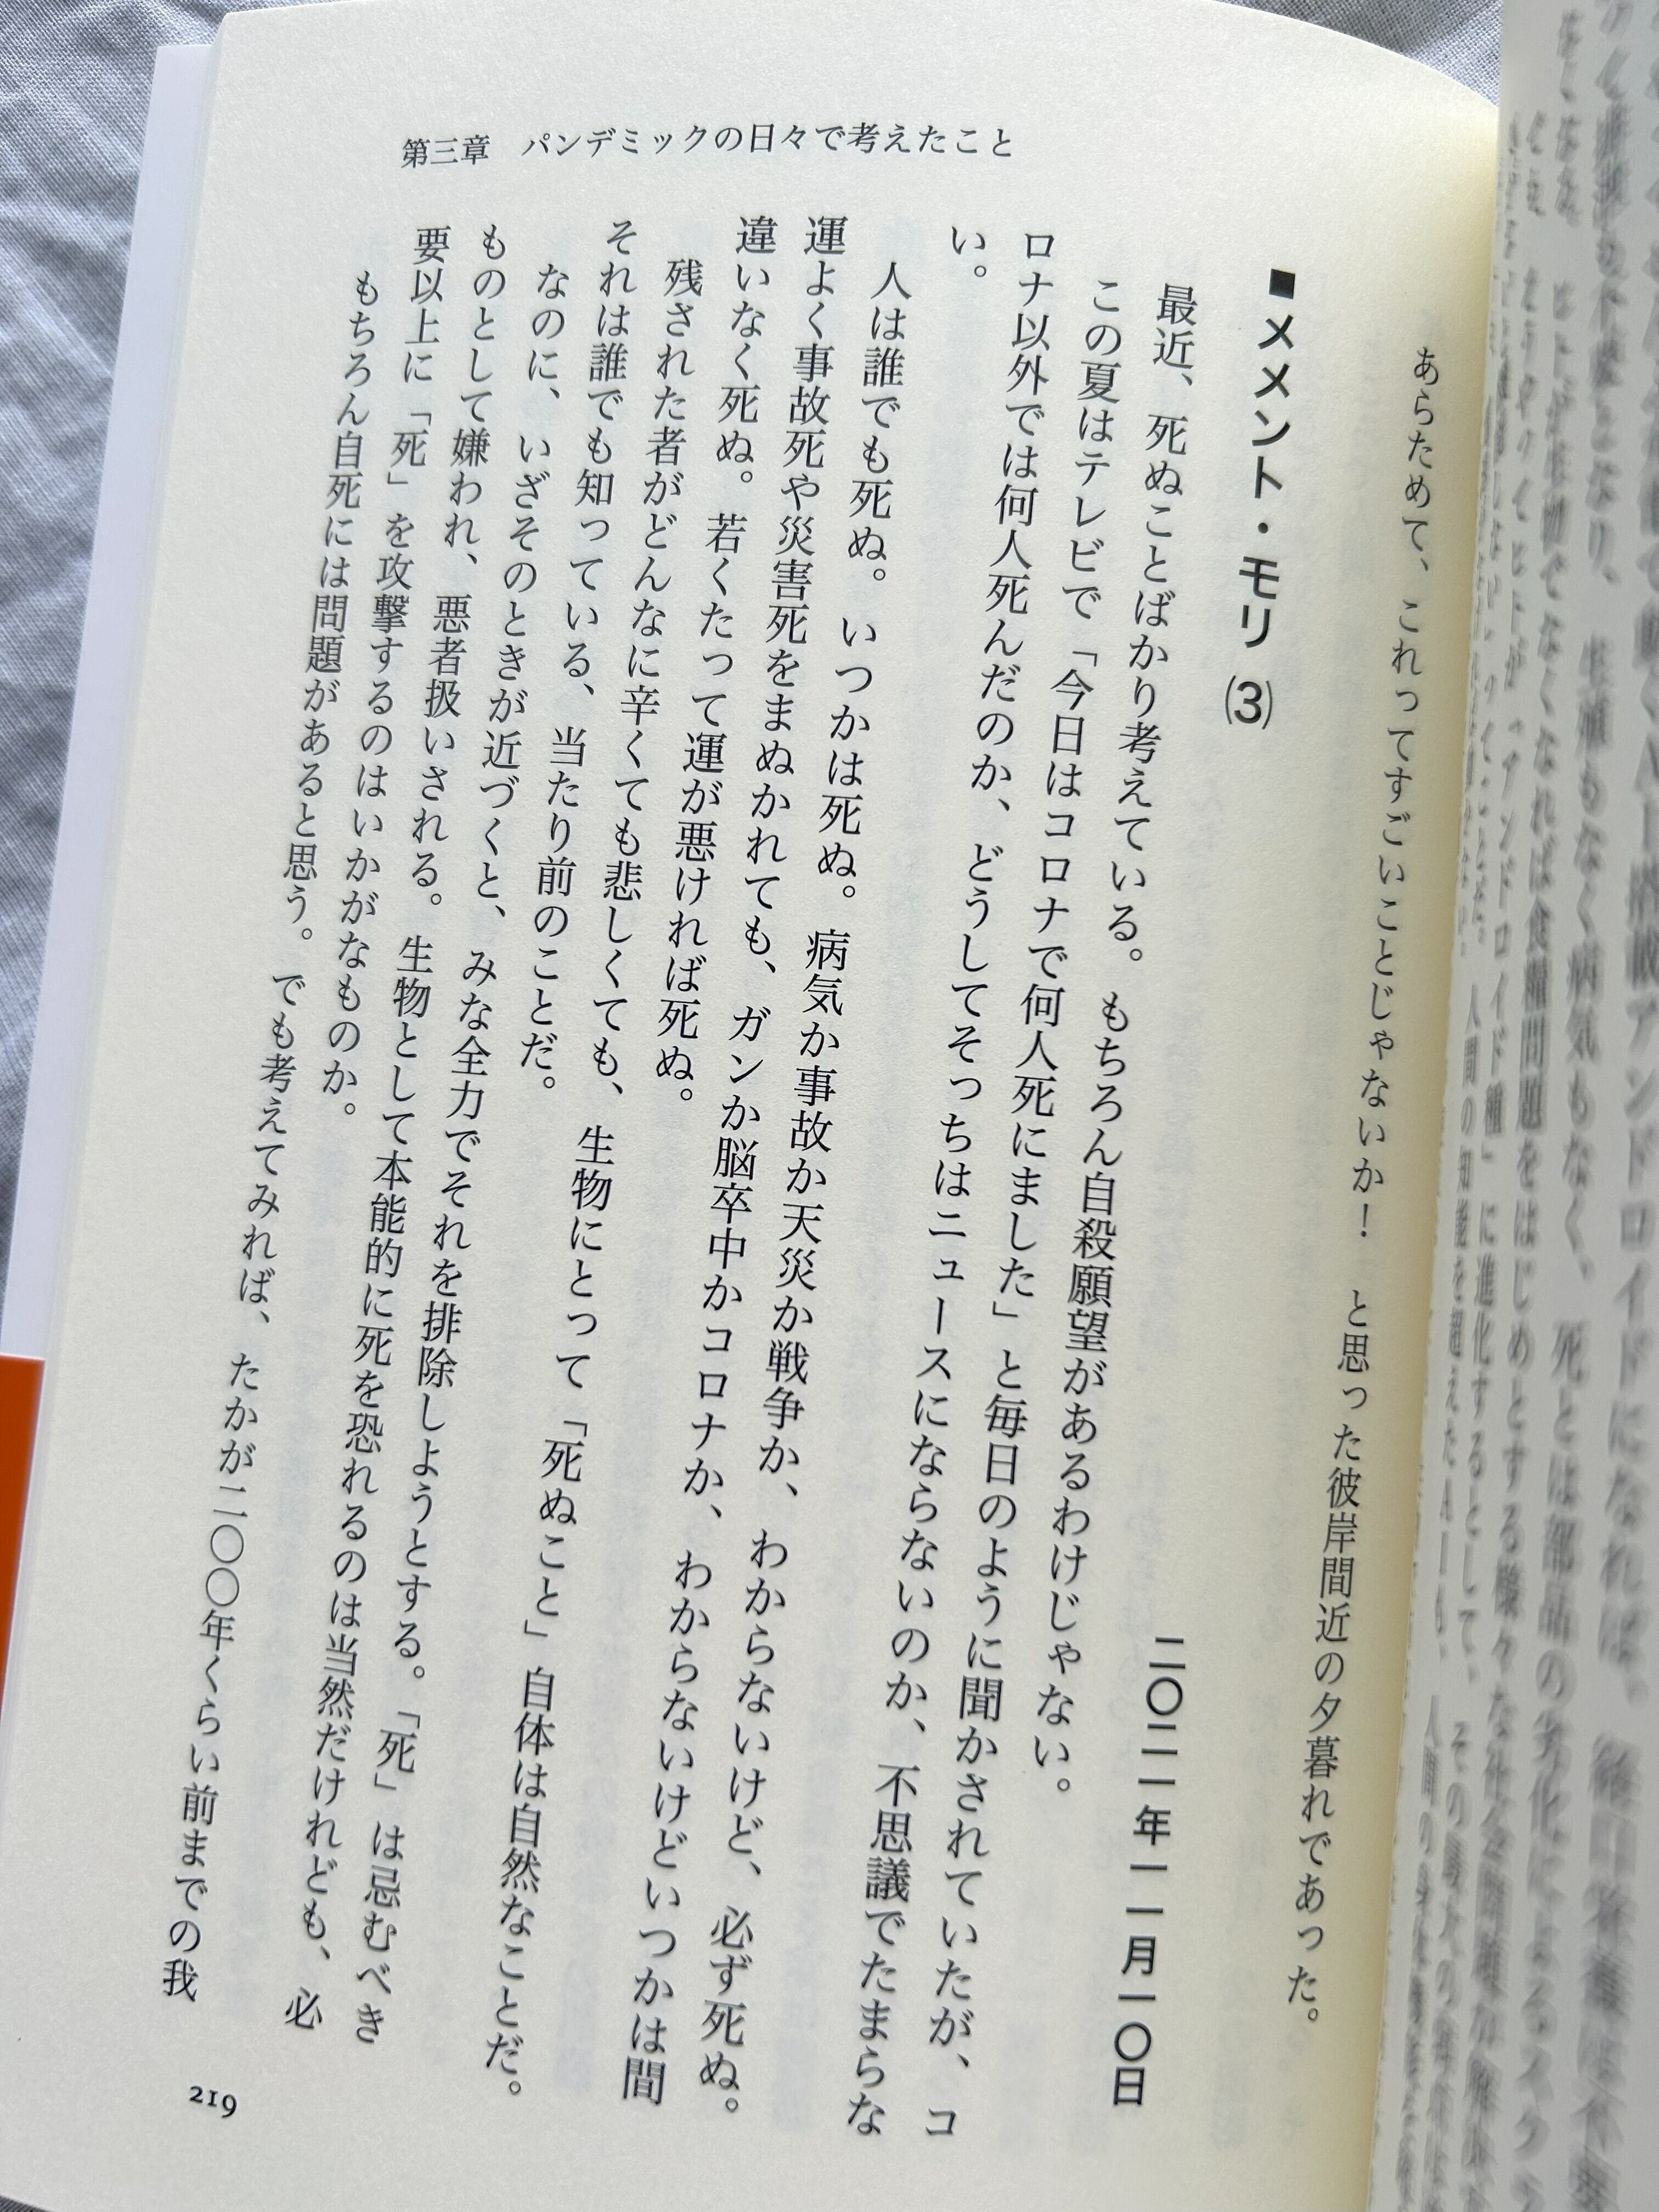 第三章 パンデミックの日々で考えたこと
あらためて、これってすごいことじゃないか! と思った彼岸間近の夕暮れであった。
■メメント・モリ(3)
二〇二一年一一月一〇日
最近、死ぬことばかり考えている。もちろん自殺願望があるわけじゃない。
この夏はテレビで「今日はコロナで何人死にました」と毎日のように聞かされていたが、コ
ロナ以外では何人死んだのか、どうしてそっちはニュースにならないのか、不思議でたまらな
い。
人は誰でも死ぬ。いつかは死ぬ。病気か事故か天災か戦争か、わからないけど、必ず死ぬ。
運よく事故死や災害死をまぬかれても、ガンか脳卒中かコロナか、わからないけどいつかは間
違いなく死ぬ。若くたって運が悪ければ死ぬ。
残された者がどんなに辛くても悲しくても、生物にとって「死ぬこと」自体は自然なことだ。
それは誰でも知っている、当たり前のことだ。
なのに、いざそのときが近づくと、みな全力でそれを排除しようとする。「死」は忌むべき
ものとして嫌われ、悪者扱いされる。生物として本能的に死を恐れるのは当然だけれども、必
要以上に「死」を攻撃するのはいかがなものか。
もちろん自死には問題があると思う。でも考えてみれば、たかが二〇〇年くらい前までの我
219